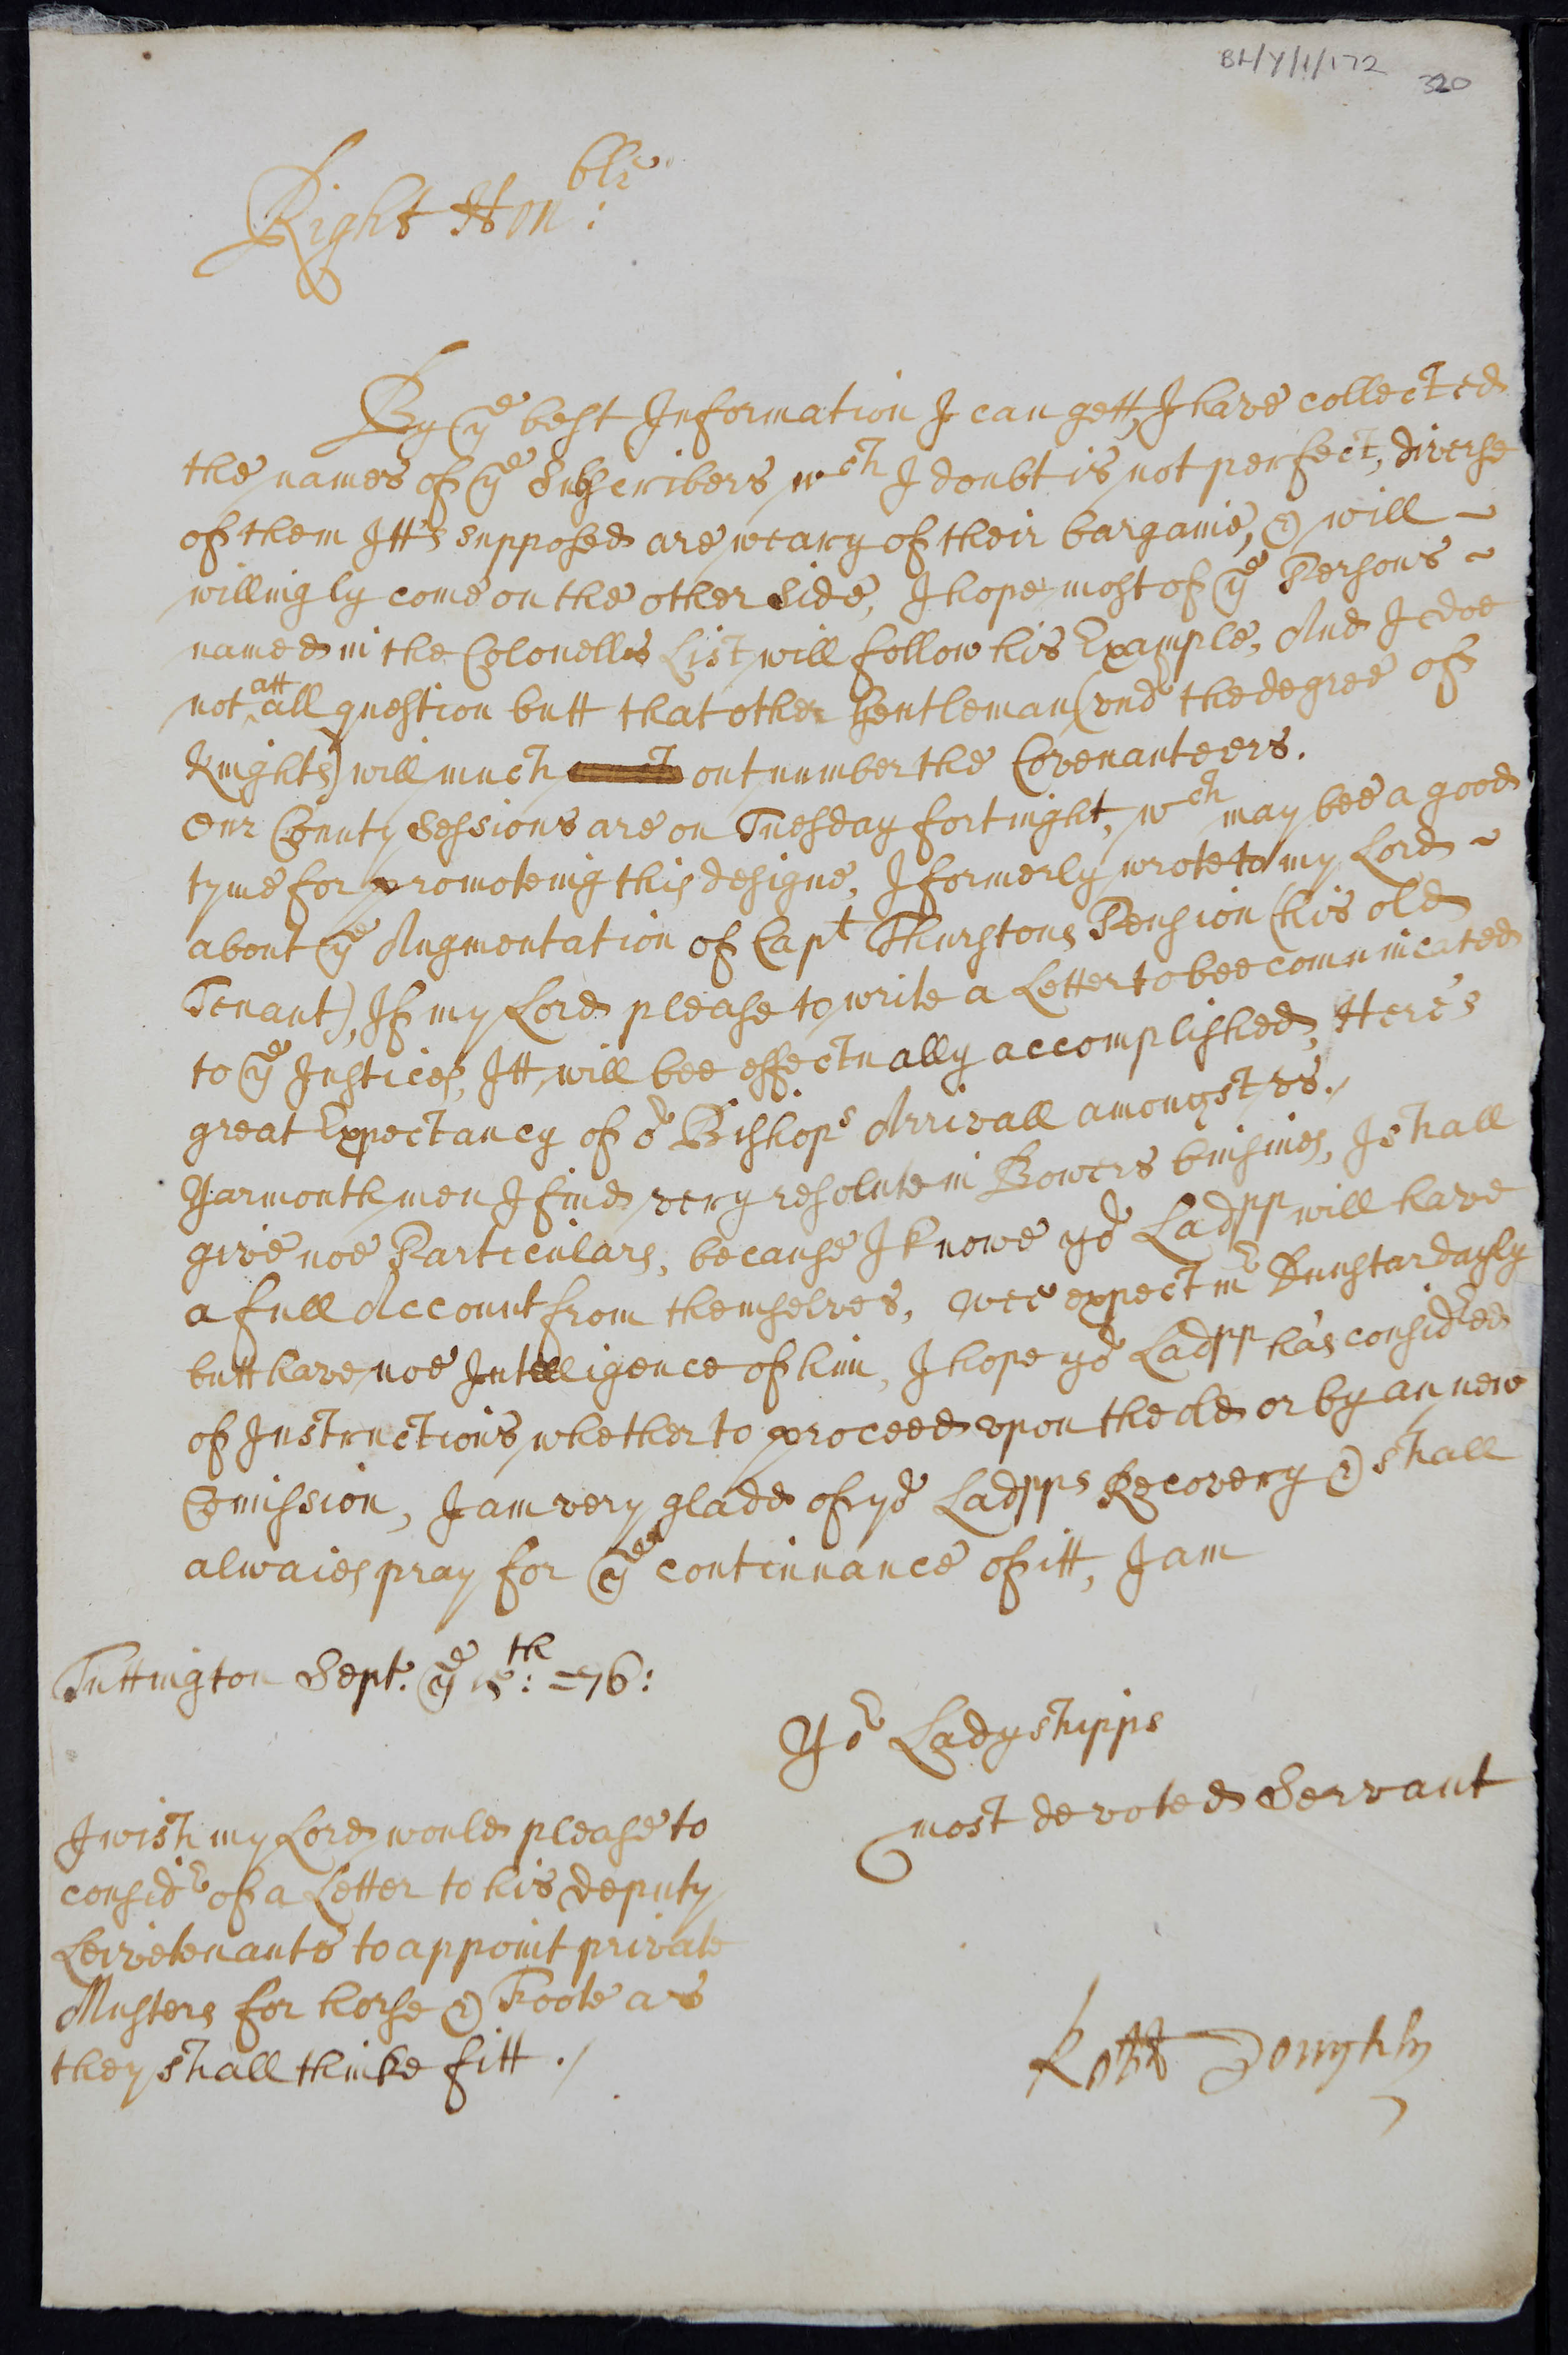 BL/Y/1/172
320
Right Honble:
By ye best Information I can gett, I have collected
the names of ye Subscribers wch I doubt is not perfect, diverse
of them Itt's supposed are weary of their bargaine, & will
willingly come on the other side, I hope most of ye Persons
named in the Colonells List will follow his Example, And I doe
not att all question butt that other Gentleman (vndr the degree of
Knights) will much outnumber the Covenanteers.
Our County Sessions are on Tuesday fortnight, wch may bee a good
tyme for promoteing this designe, I formerly wrote to my Lord
about ye Augmentation of Capt Thurstons Pension (his old
Tenant), If my Lord please to write a Letter to bee comunicated
to ye Justices, Itt will bee effectually accomplished, Here's
great Expectancy of or Bishops Arrivall amongst vs./
Yarmouth men I find very resolute in Bowers buisines, I shall
give noe Particulars, because I knowe yor Ladpp will have
a full Account from themselves, wee expect mr Dunstar dayly
butt have noe Intelligence of him, I hope yor Ladpp has considred
of Instructions whether to proceed vpon the old or by an new
Comission, I am very gladd of yor Ladpps Recovery & shall
alwaies pray for ye continuance of itt, I am
Tuttington Sept. ye 15:th =76:
Yor Ladyshipps
most devoted Servant
I wish my Lord would please to
considr of a Letter to his deputy
Leivetenants to appoint private
Musters for horse & Foote as
they shall thinke fitt ./
Robt Doughty